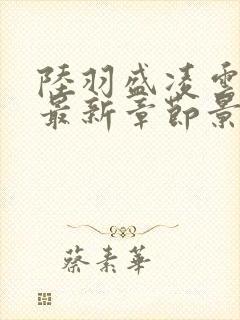 陸羽盛凌雲
最新章節景
蔡素華